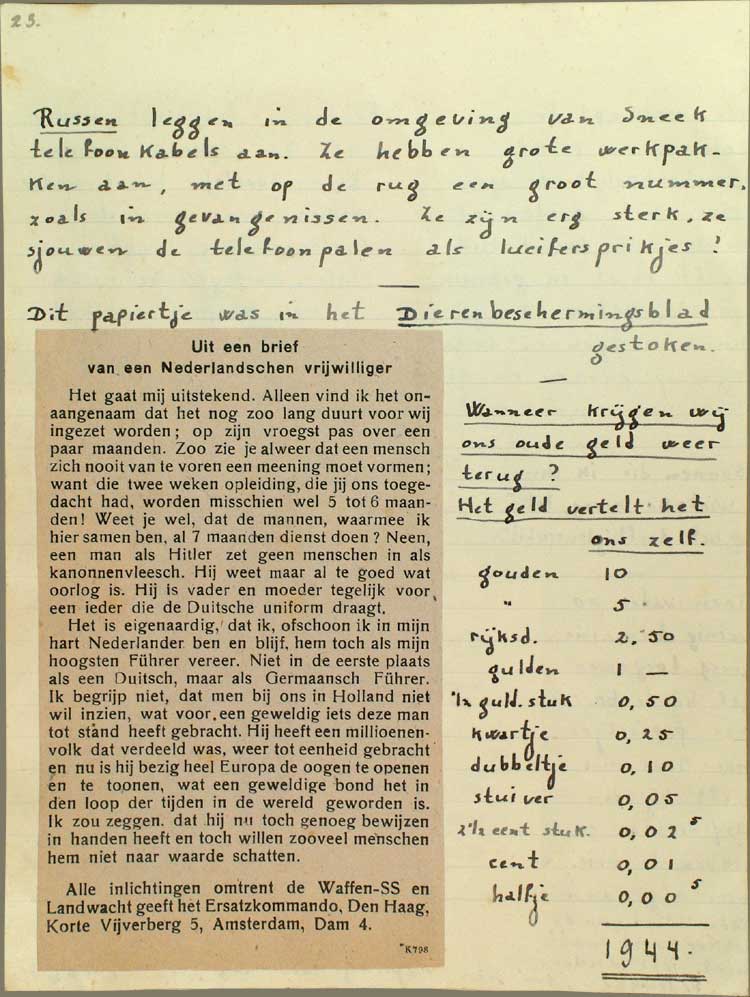 23.
Russen leggen in de omgeving van Sneek
telefoonkabels aan. Ze hebben grote werkpak-
ken aan, met op de rug een groot nummer,
zoals in gevangenissen. Ze zijn erg sterk, ze
sjouwen de telefoonpalen als lucifersprikjes!
Dit papiertje was in het Dierenbeschermingsblad
gestoken.
Uit een brief
van een Nederlandschen vrijwilliger
Het gaat mij uitstekend. Alleen vind ik het on-
aangenaam dat het nog zoo lang duurt voor wij
ingezet worden; op zijn vroegst pas over een
paar maanden. Zoo zie je alweer dat een mensch
zich nooit van te voren een meening moet vormen;
want die twee weken opleiding, die jij ons toege-
dacht had, worden misschien wel 5 tot 6 maan-
den! Weet je wel, dat de mannen, waarmee ik
hier samen ben, al 7 maanden dienst doen? Neen,
een man als Hitler zet geen menschen in als
kanonnenvleesch. Hij weet maar al te goed wat
oorlog is. Hij is vader en moeder tegelijk voor
een ieder die de Duitsche uniform draagt.
Het is eigenaardig, dat ik, ofschoon ik in mijn
hart Nederlander ben en blijf, hem toch als mijn
hoogsten Führer vereer. Niet in de eerste plaats
als een Duitsch, maar als Germaansch Führer.
Ik begrijp niet, dat men bij ons in Holland niet
wil inzien, wat voor een geweldig iets deze man
tot stand heeft gebracht. Hij heeft een millioenen-
volk dat verdeeld was, weer tot eenheid gebracht
en nu is hij bezig heel Europa de oogen te openen
en te toonen, wat een geweldige bond het in
den loop der tijden in de wereld geworden is.
Ik zou zeggen. dat hij nu toch genoeg bewijzen
in handen heeft en toch willen zooveel menschen
hem niet naar waarde schatten.
Alle inlichtingen omtrent de Waffen-SS en
Landwacht geeft het Ersatzkommando, Den Haag,
Korte Vijverberg 5, Amsterdam, Dam 4.
K798
Wanneer krijgen wij
ons oude geld weer
terug?
Het geld vertelt het
ons zelf.
gouden 10
" 5
rijksd. 2.50
gulden 1 —
1/2 guld. stuk 0,50
kwartje 0,25
dubbeltje 0,10
stuiver 0,05
2 1/2 cent stuk. 0,02⁵
cent 0,01
halfje 0,00⁵
1944.